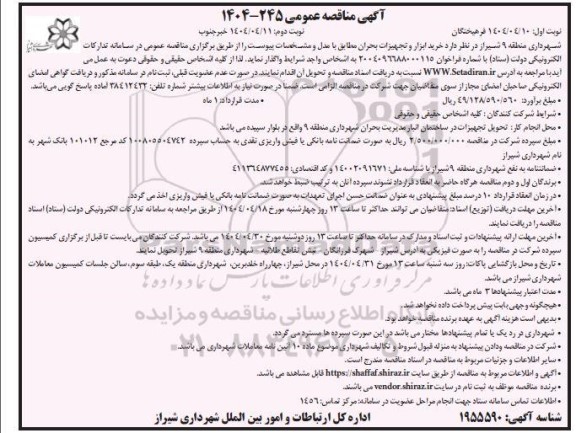 آگهی مناقصه عمومی ۲۴۵-۱۴۰۴
نوبت اول: ۱۴۰۴/۰۴/۱۰ فرهیختگان
نوبت دوم: ۱۴۰۴/۰۴/۱۱ خبرجنوب
شهرداری منطقه ۹ شیراز در نظر دارد خرید ابزار و تجهیزات بحران مطابق با مدل و مشخصات پیوست را از طریق برگزاری مناقصه عمومی در سامانه تدارکات
الکترونیکی دولت (ستاد) با شماره فراخوان ۲۰۰۴۰۹۶۶۸۸۰۰۰۱۱۵ به اشخاص واجد شرایط واگذار نماید. لذا از کلیه اشخاص حقیقی و حقوقی دعوت به عمل می
آید با مراجعه به آدرس WWW.Setadiran.ir نسبت به دریافت اسناد مناقصه و تحویل آن اقدام نمایند. در صورت عدم عضویت قبلی، ثبت نام در سامانه مذکور و دریافت گواهی امضای
الکترونیکی صاحبان امضای مجاز از سوی متقاضیان جهت شرکت در مناقصه الزامی است. ضمنا در صورت نیاز به اطلاعات بیشتر شماره تلفن: ۳۸۴۱۲۴۳۳ آماده پاسخ گویی می‌باشد.
• مبلغ برآورد: ۴۹/۱۲۸/۵۹۰/۵۶۰ ریال
• مدت قرارداد: ۱ ماه
• شرایط شرکت کنندگان: کلیه اشخاص حقیقی و حقوقی
• محل انجام کار: تحویل تجهیزات در ساختمان انبار مدیریت بحران شهرداری منطقه ۹ واقع در بلوار سپیده می باشد
• مبلغ سپرده شرکت در مناقصه ۲/۵۰۰/۰۰۰/۰۰۰ ریال به صورت ضمانت نامه بانکی یا فیش واریزی نقدی به حساب سپرده ۱۰۰۸۰۵۵۰۴۷۴۲ کد مرجع ۱۰۱۰۱۲ بانک شهر به
نام شهرداری شیراز
• ضمانتنامه به نفع شهرداری منطقه ۹ شیراز با شناسه ملی: ۱۴۰۰۲۰۹۱۶۷۱ و کد اقتصادی: ۴۱۱۳۶۴۸۷۷۴۵۵
• برندگان اول و دوم مناقصه هرگاه حاضر به انعقاد قرارداد نشوند سپرده آنان به ترتیب ضبط خواهد شد.
• در زمان انعقاد قرارداد ۱۰ درصد مبلغ پیشنهادی به عنوان ضمانت حسن اجرای تعهدات به صورت ضمانت نامه بانکی یا فیش واریزی اخذ می گردد.
• آخرین مهلت دریافت (توزیع) اسناد: متقاضیان می توانند حداکثر تا ساعت ۱۳ روز چهارشنبه مورخ ۱۴۰۴/۰۴/۱۸ از طریق مراجعه به سامانه تدارکات الکترونیکی دولت (ستاد) اسناد
مناقصه را دریافت نمایند.
• آخرین مهلت ارائه پیشنهادات و ثبت اسناد و مدارک در سامانه حداکثر تا ساعت ۱۳ روز دوشنبه مورخ ۱۴۰۴/۰۴/۳۰ می باشد. شرکت کنندگان می بایست تا قبل از برگزاری کمیسیون
سپرده شرکت در مناقصه را به صورت فیزیکی به آدرس شیراز - شهرک فرزانگان - نبش تقاطع طلائیه - شهرداری منطقه ۹ شیراز تحویل نمایند.
• تاریخ و محل بازگشایی پاکات: روز سه شنبه ساعت ۱۳ مورخ ۱۴۰۴/۰۴/۳۱ در محل شیراز، چهارراه خلدبرین، شهرداری منطقه یک، طبقه سوم، سالن جلسات کمیسیون معاملات
شهرداری شیراز می باشد.
• مدت اعتبار پیشنهادها ۳ ماه می باشد.
• هیچگونه وجهی بابت پیش پرداخت داده نخواهد شد.
• بدیهی است هزینه آگهی به عهده برنده مناقصه خواهد بود.
• شهرداری در رد یک یا تمام پیشنهادها مختار می باشد در این صورت سپرده ها مسترد می گردد.
• شرکت در مناقصه ودادن پیشنهاد به منزله قبول شروط و تکالیف شهرداری موضوع ماده ۱۰ آیین نامه معاملات شهرداری می باشند.
• سایر اطلاعات و جزئیات مربوط به مناقصه در اسناد مناقصه مندرج است.
• آگهی و اطلاعات مربوط به مناقصه از طریق سایت https://shaffaf.shiraz.ir قابل مشاهده می باشد.
• برنده مناقصه موظف به ثبت نام در سایت vendor.shiraz.ir می باشد.
• اطلاعات تماس سامانه ستاد جهت انجام مراحل عضویت در سامانه: مرکز تماس: ۱۴۵۶
شناسه آگهی: ۱۹۵۵۵۹۰
اداره کل ارتباطات و امور بین الملل شهرداری شیراز